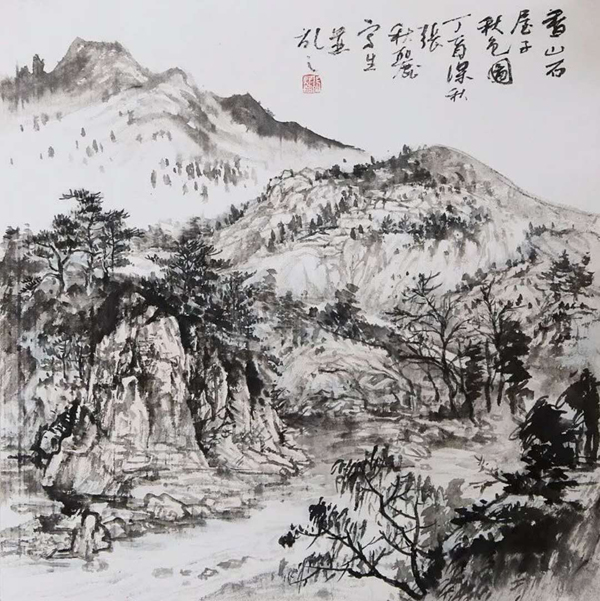 香山石
屋子
秋色圖
丁酉深秋
張
秋
寫生
並
記之